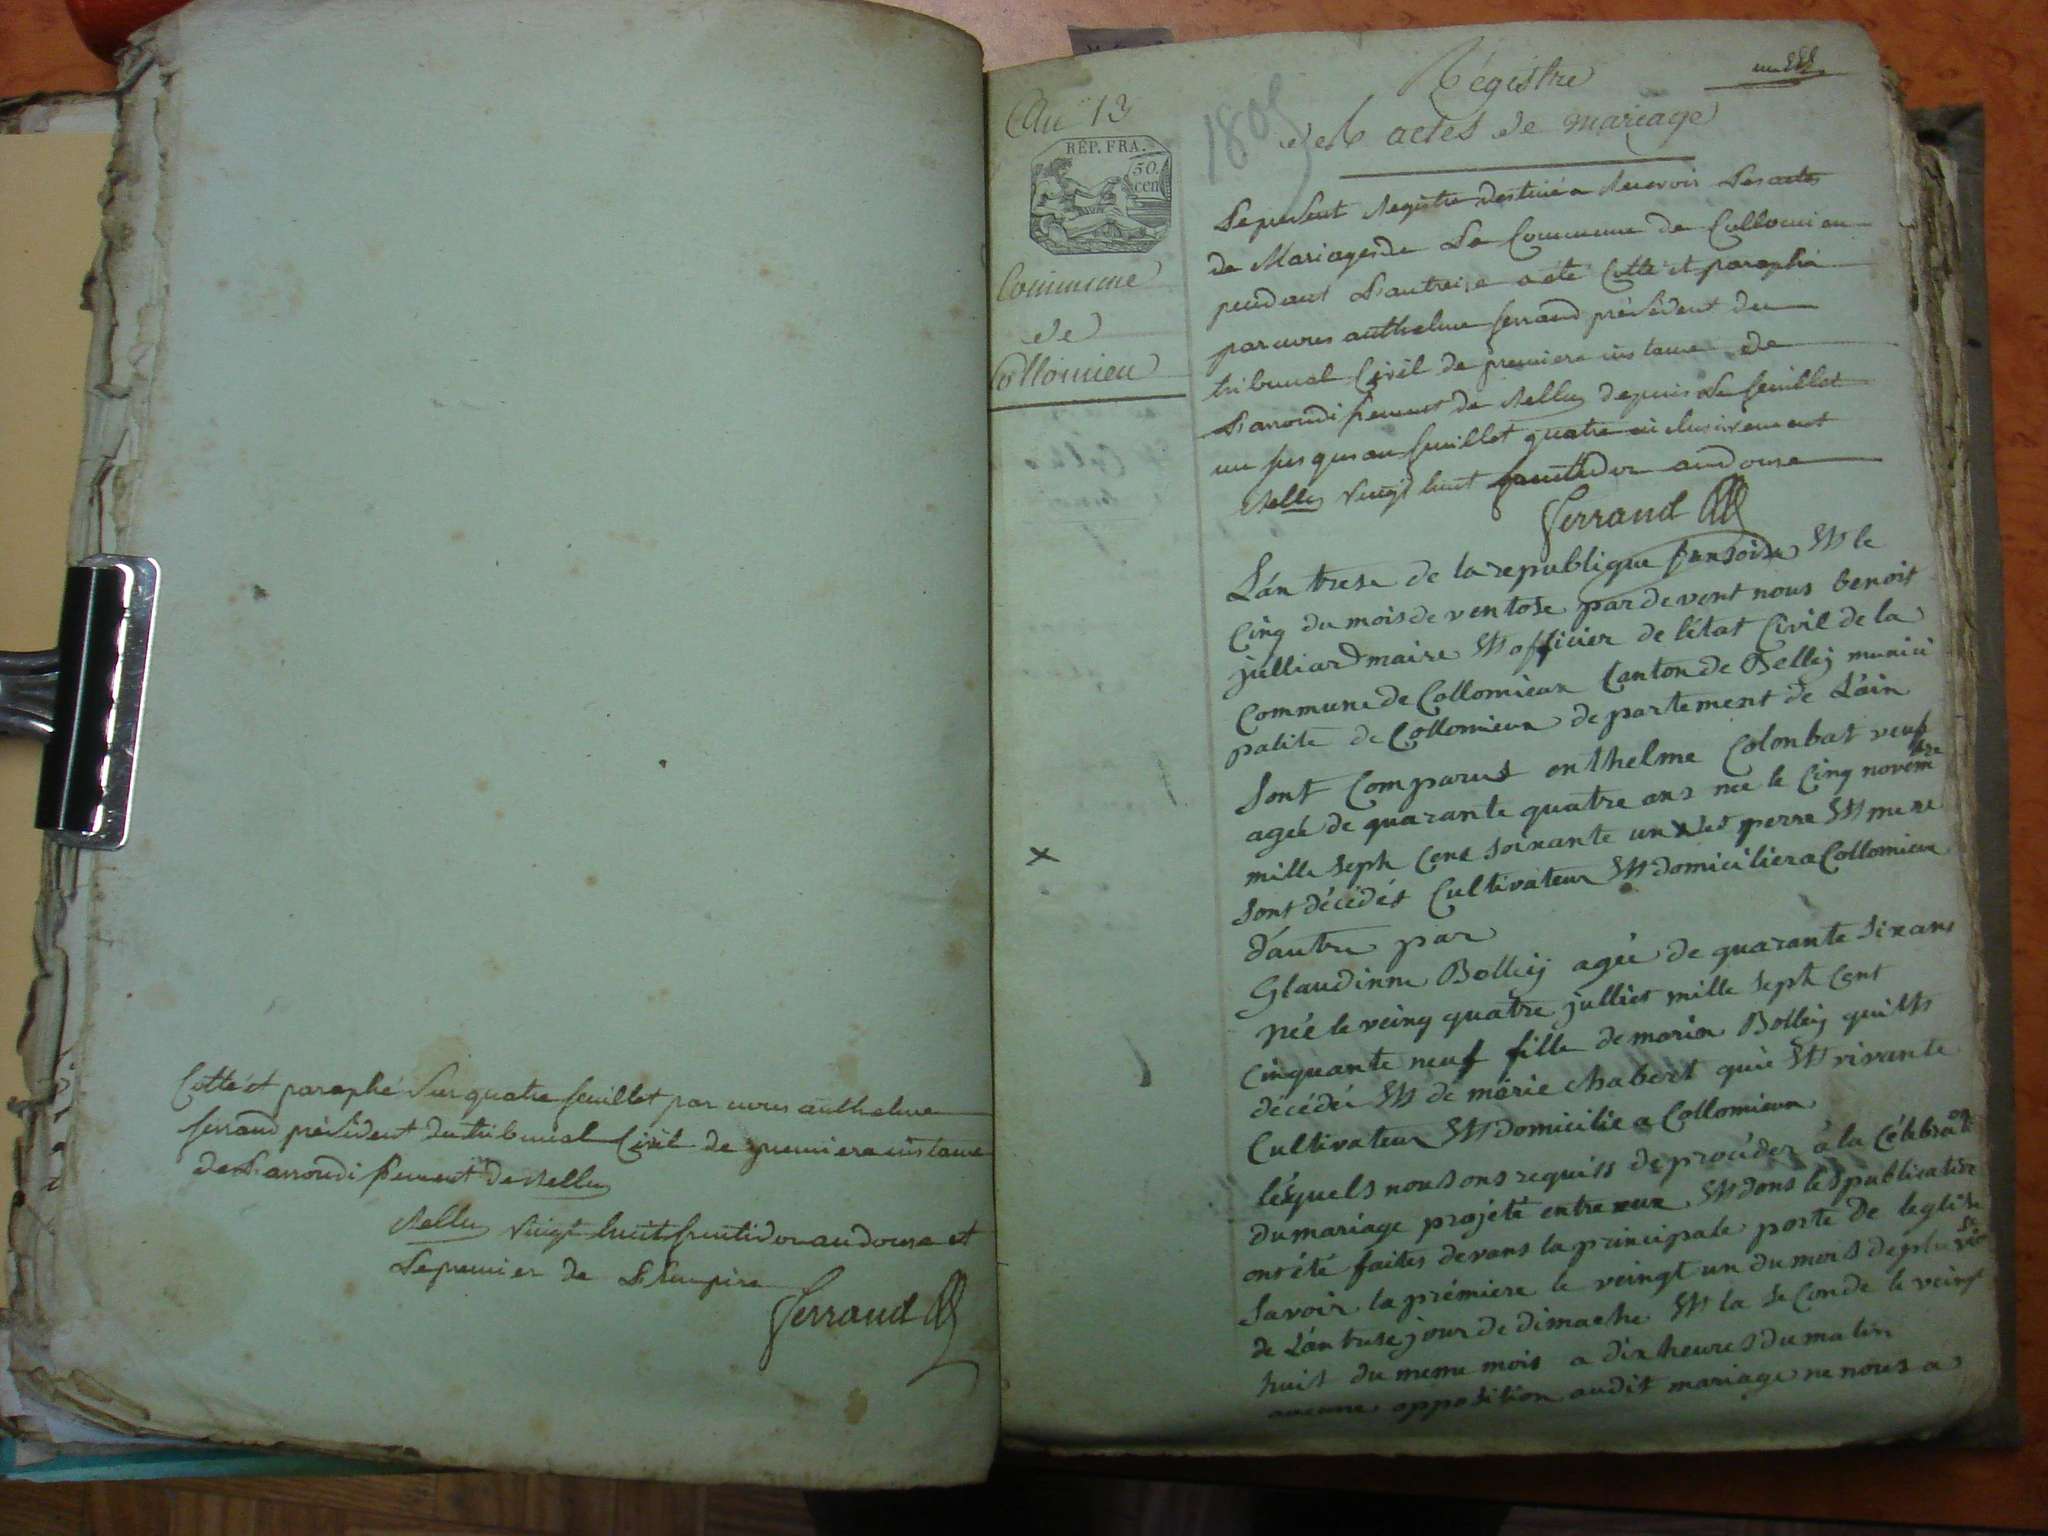 Cotté et paraphé Sur quatre feuillet par nous anthelme
ferrand président du tribunal Civil de premiere instance
de L'arrondissement de Belley
Belley vingt huit fructidor an douse et
Le premier de L'Empire
ferrand
An 13
REP. FRA.
50.
cen
Commune
de
Collomieu
1805
un
Régistre
des actes de mariage
Le present Registre destiné a Recevoir Les actes
de Mariages de La Commune de Collomieu
pendant L'an treise a été Cotté et paraphé
par nous anthelme ferrand président du
tribunal Civil de premiere instance de
L'arrondissement de Belley depuis Le feuillet
un jusques au feuillet quatre inclusivement
Belley vingt huit fructidor an douse
ferrand
L'an trese de la republique fransoise et le
Cinq du mois de ventose par devent nous benoit
julliard maire et officier de l'état Civil de la
Commune de Collomieux Canton de Belley munici
palite de Collomieux departement de L'ain
Sont Comparus enthelme Colonbat veuf
ageé de quarante quatre ans neé le Cinq novem
bre
mille sept Cent soixante un les perre et mere
sont décédés Cultivateur et domicilier a Collomieux
d'autre par
Glaudinne Bolleÿ ageé de quarante six ans
née le veing quatre julliet mille sept Cent
Cinquante neuf fille de marin Bolleÿ qui est
décédeé et de marie chabert qui et vivante
Cultivateur et domicilié a Collomieux
lésquels nous ons requiss de procéder à la Célébrati
on
du mariage projété entre eux et dons les publication
ont été faites devans la principale porte de leglise
Savoir la prémiere le veingt un du mois de pluvio
se
de L'an trese jour de dimache et la seConde le veingt
huit du meme mois a dix heures du matin
aucune opposition audit mariage ne nous a